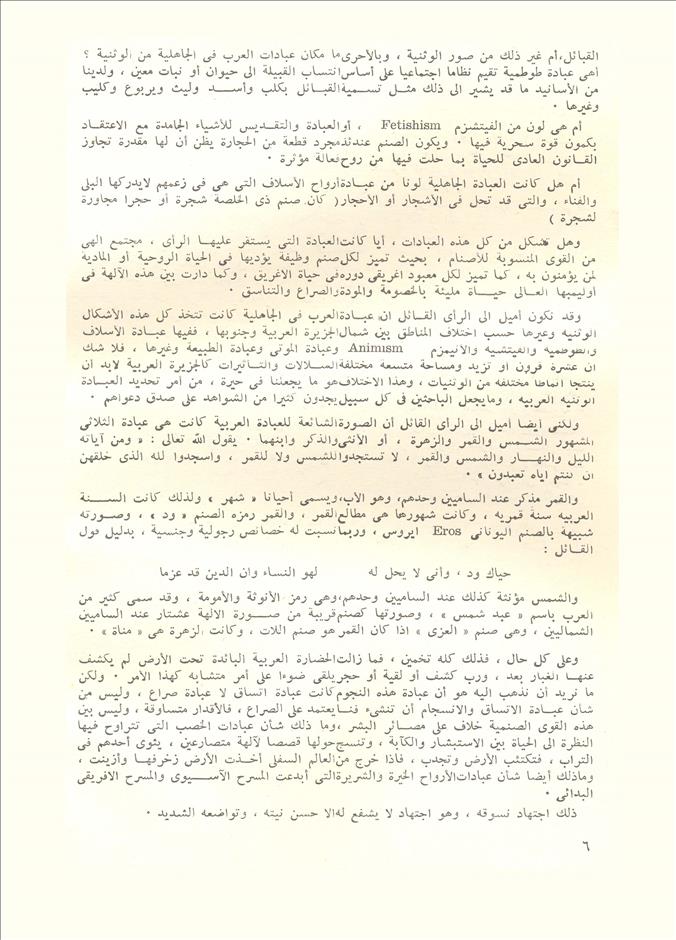 القبائل، أم غير ذلك من صور الوثنية ، وبالأحرى ما مكان عبادات العرب فى الجاهلية من الوثنية ؟
أهى عبادة طوطمية تقيم نظاما اجتماعيا على أساس انتساب القبيلة الى حيوان أو نبات معين ، ولدينا
من الأسانيد ما قد يشير الى ذلك مثل تسمية القبائل بكلب وأسد وليث ويربوع وكليب
وغيرها .
أم هى لون من الفيتشزم Fetishism ، أو العبادة والتقديس للأشياء الجامدة مع الاعتقاد
بكمون قوة سحرية فيها . ويكون الصنم عندئذ مجرد قطعة من الحجارة يظن أن لها مقدرة تجاوز
القانون العادى للحياة بما حلت فيها من روح نعالة مؤثرة .
أم هل كانت العبادة الجاهلية لونا من عبادة أرواح الأسلاف التى هى فى زعمهم لايدركها البلى
والفناء ، والتى قد تحل فى الأشجار أو الأحجار ( كان صنم ذى الخلصة شجرة أو حجرا مجاورة
لشجرة )
وهل تشكل من كل هذه العبادات ، أيا كانت العبادة التى يستقر عليها الرأى ، مجتمع الهى
من القوى المنسوبة للأصنام ، بحيث تميز لكل صنم وظيفة يؤديها فى الحياة الروحية أو المادية
لمن يؤمنون به ، كما تميز لكل معبود اغريقى دوره فى حياة الاغريق ، وكما دارت بين هذه الآلهة فى
أوليمبها العالى حياة مليئة بالخصومة والمودة والصراع والتناسق .
وقد نكون أميل الى الرأى القائل ان عبادة العرب فى الجاهلية كانت تتخذ كل هذه الأشكال
الوثنية وغيرها حسب اختلاف المناطق بين شمال الجزيرة العربية وجنوبها ، ففيها عبادة الأسلاف
والطوطمية والفيتشية والأنيمزم Animism وعبادة الموتى وعبادة الطبيعة وغيرها ، فلا شك
أن عشرة قرون أو تزيد ومساحة متسعة مختلفة السلالات والتأثيرات كالجزيرة العربية لابد أن
ينتجا أنماطا مختلفة من الوثنيات ، وهذا الاختلاف هو ما يجعلنا فى حيرة ، من أمر تحديد العبادة
الوثنية العربية ، وما يجعل الباحثين فى كل سبيل يجدون كثيرا من الشواهد على صدق دعواهم .
ولكنى أيضا أميل الى الرأى القائل أن الصورة الشائعة للعبادة العربية كانت هى عبادة الثلاثى
المشهور الشمس والقمر والزهرة ، أو الأنثى والذكر وابنهما . يقول الله تعالى : « ومن آياته
الليل والنهار والشمس والقمر ، لا تسجدوا للشمس ولا للقمر ، واسجدوا لله الذى خلقهن
ان كنتم اياه تعبدون » .
والقمر مذكر عند الساميين وحدهم، وهو الأب، ويسمى أحيانا « شهر » ولذلك كانت السنة
العربيه سنة قمريه ، وكانت شهورها هى مطالع القمر ، والقمر رمزه الصنم « ود » ، وصورته
شبيهة بالصنم اليونانى Eros ايروس ، وربما نسبت له خصائص رجولية وجنسية ، بدليل قول
القائل :
حياك ود ، وأنى لا يحل له لهو النساء وان الدين قد عزما
والشمس مؤنثة كذلك عند الساميين وحدهم، وهى رمز الأنوثة والأمومة ، وقد سمى كثير من
العرب باسم « عبد شمس » ، وصورتها كصنم قريبة من صورة الالهة عشتار عند الساميين
الشماليين ، وهى صنم « العزى » اذا كان القمر هو صنم اللات ، وكانت الزهرة هى « مناة » .
وعلى كل حال ، فذلك كله تخمين ، فما زالت الحضارة العربية البائدة تحت الأرض لم يكشف
عنها الغبار بعد ، ورب كشف أو لقية أو حجر يلقى ضوءا على أمر متشابه كهذا الأمر . ولكن
ما نريد أن نذهب اليه هو أن عبادة هذه النجوم كانت عبادة اتساق لا عبادة صراع ، وليس من
شأن عبادة الاتساق والانسجام أن تنشىء فنا يعتمد على الصراع ، فالأقدار متساوقة ، وليس بين
هذه القوى الصنمية خلاف على مصائر البشر ، وما ذلك شأن عبادات الخصب التى تتراوح فيها
النظرة الى الحياة بين الاستبشار والكآبة ، وتنسج حولها قصصا لآلهة متصارعين ، يثوى أحدهم فى
التراب ، فتكتئب الأرض وتجدب ، فاذا خرج من العالم السفلى أخذت الأرض زخرفها وأزينت ،
وماذلك أيضا شأن عبادات الأرواح الخيرة والشريرة التى أبدعت المسرح الآسيوى والمسرح الافريقى
البدائى .
ذلك اجتهاد نسوقه ، وهو اجتهاد لا يشفع له الا حسن نيته ، وتواضعه الشديد .
٦